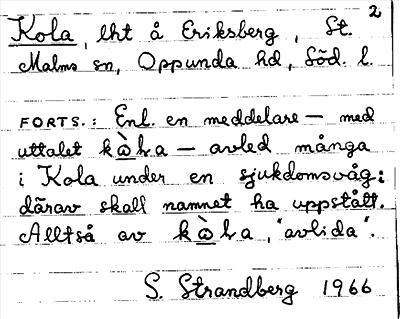 2
Kola, lht å Eriksberg, St.
Malms sn, Oppunda hd, Söd. l.
FORTS.: Enl. en meddelare — med
uttalet kòla — avled många
i Kola under en sjukdomsvåg;
därav skall namnet ha uppstått.
Alltså av kòla, "avlida".
S. Strandberg 1966